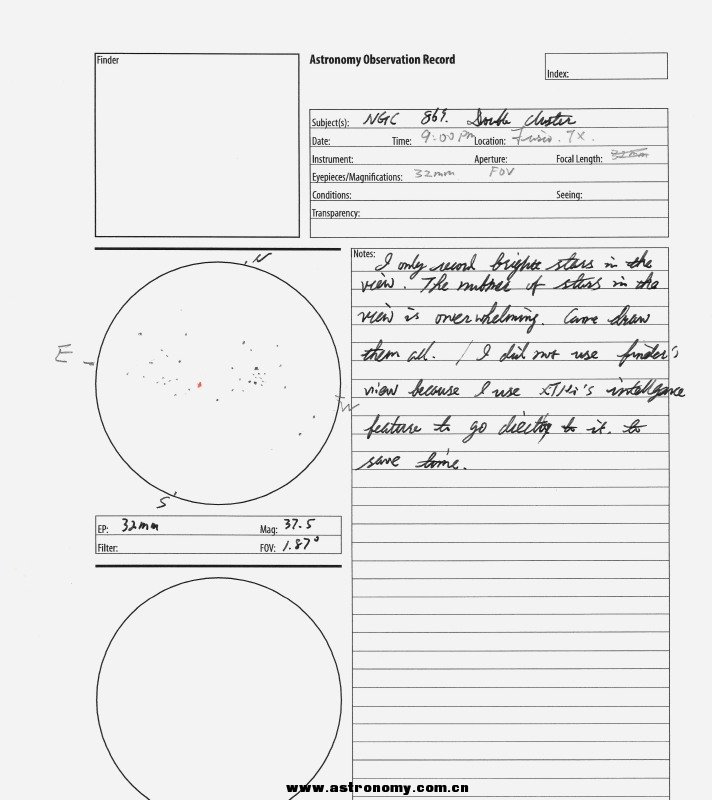 Finder
Astronomy Observation Record
Index:
Subject(s): NGC 869. Double Cluster
Date: Time: 9:00 PM Location: Frisco. TX.
Instrument: Aperture: Focal Length:
Eyepieces/Magnifications: 32mm FOV
Conditions: Seeing:
Transparency:
N
E
W
S
EP: 32mm Mag: 37.5
Filter: FOV: 1.87°
Notes:
I only record bright stars in the
view. The number of stars in the
view is overwhelming. Can't draw
them all. / I did not use finder's
view because I use intelligence
feature to go directly to it. to
save time.
www.astronomy.com.cn